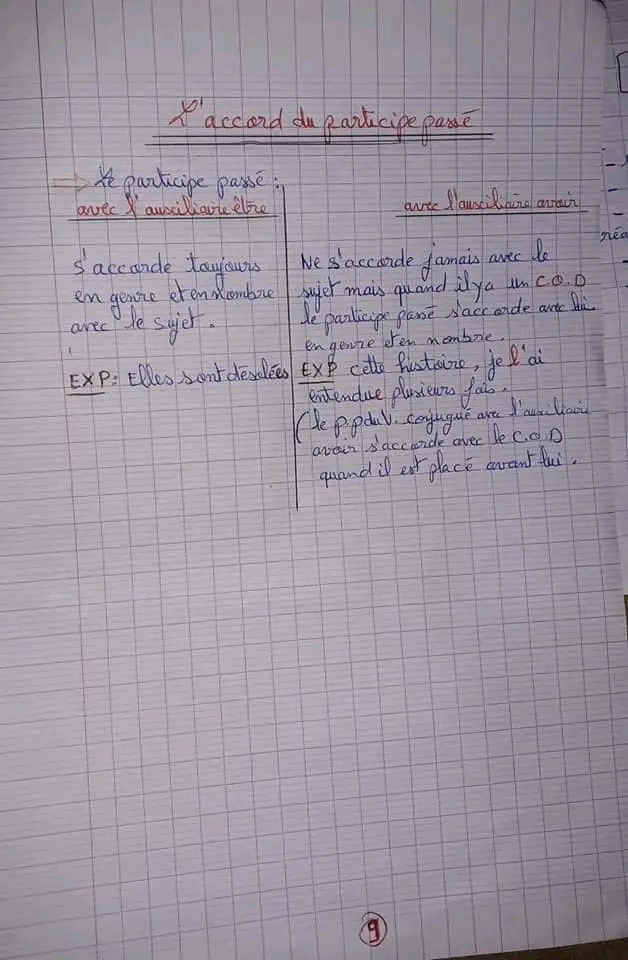 L'accord du participe passé
Le participe passé :
avec l'auxiliaire être
s'accorde toujours
en genre et en nombre
avec le sujet.
EXP: Elles sont désolées
avec l'auxiliaire avoir
Ne s'accorde jamais avec le
sujet mais quand il y a un C.O.D
le participe passé s'accorde avec lui
en genre et en nombre.
EXP cette histoire, je l'ai
entendue plusieurs fois.
(le p.p du V. conjugué avec l'auxiliair
avoir s'accorde avec le C.O.D
quand il est placé avant lui.
réa
9